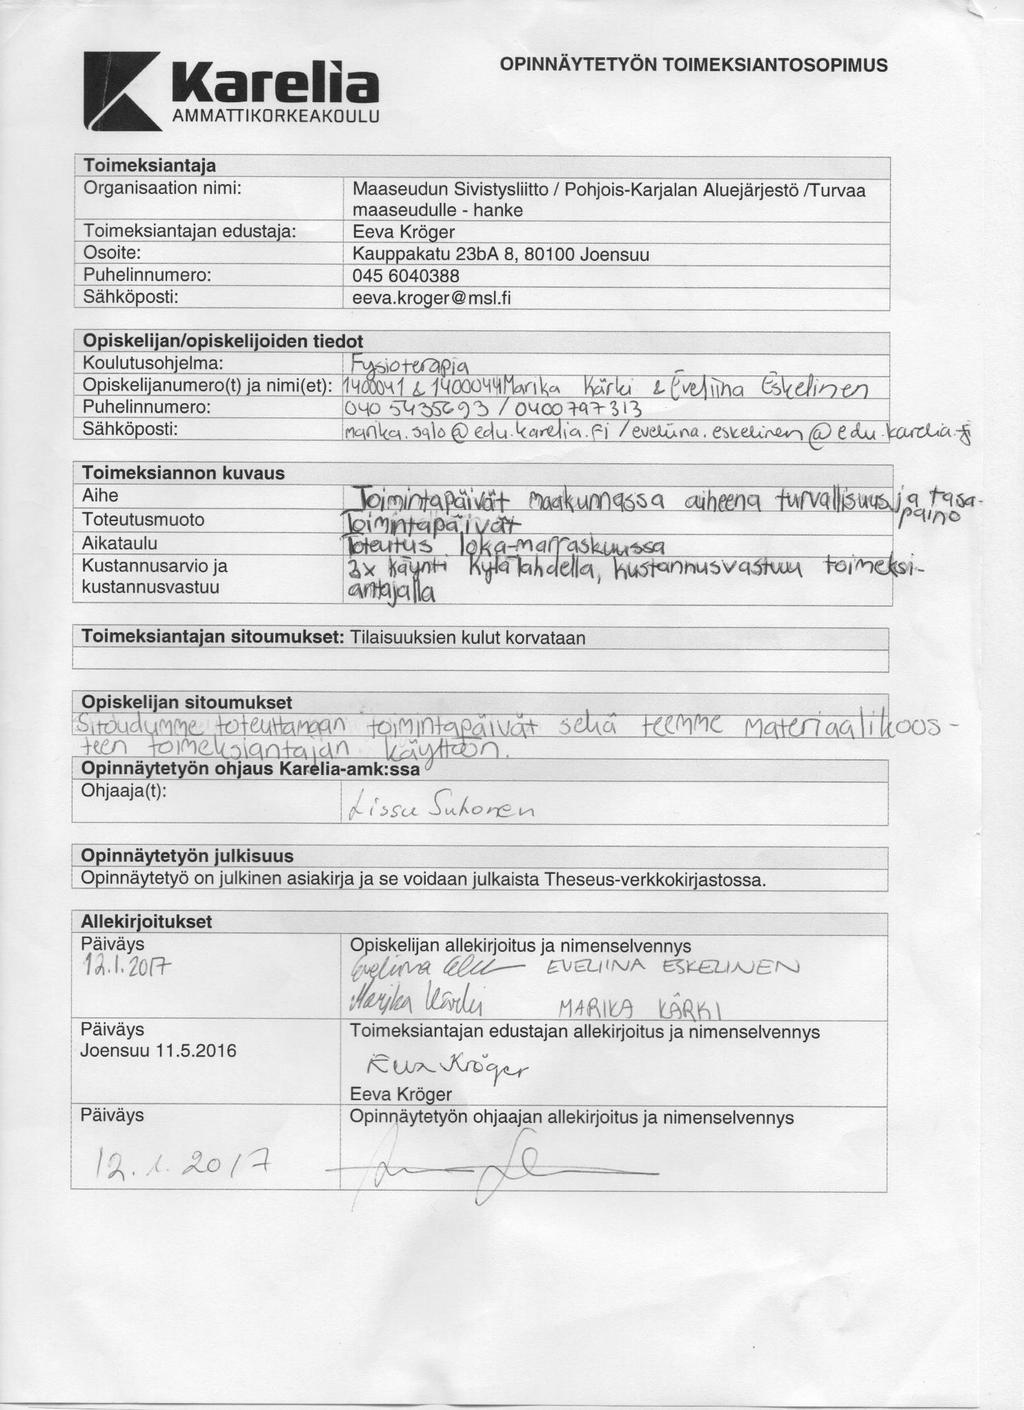 Karelia
AMMATTIKORKEAKOULU
OPINNÄYTETYÖN TOIMEKSIANTOSOPIMUS
Toimeksiantaja
Organisaation nimi: Maaseudun Sivistysliitto / Pohjois-Karjalan Aluejärjestö /Turvaa
maaseudulle - hanke
Toimeksiantajan edustaja: Eeva Kröger
Osoite: Kauppakatu 23bA 8, 80100 Joensuu
Puhelinnumero: 045 6040388
Sähköposti: eeva.kroger@msl.fi
Opiskelijan/opiskelijoiden tiedot
Koulutusohjelma: Fysioterapia
Opiskelijanumero(t) ja nimi(et): 1400041 & 1400044 Marika Kärki & Eveliina Eskelinen
Puhelinnumero: 040 5435693 / 0400 747 313
Sähköposti: marika.salo@edu.karelia.fi / eveliina.eskelinen@edu.karelia.fi
Toimeksiannon kuvaus
Aihe Toimintapäivät maakunnassa aiheena turvallisuus ja tasa-
paino
Toteutusmuoto Toimintapäivät
Aikataulu Toteutus loka-marraskuussa
Kustannusarvio ja 3x käynti Kylälahdella, kustannusvastuu toimeksi-
kustannusvastuu antajalla
Toimeksiantajan sitoumukset: Tilaisuuksien kulut korvataan
Opiskelijan sitoumukset
Sitoudumme toteuttamaan toimintapäivät sekä teemme materiaalikoos-
teen toimeksiantajan käyttöön.
Opinnäytetyön ohjaus Karelia-amk:ssa
Ohjaaja(t): Lissu Suhonen
Opinnäytetyön julkisuus
Opinnäytetyö on julkinen asiakirja ja se voidaan julkaista Theseus-verkkokirjastossa.
Allekirjoitukset
Päiväys Opiskelijan allekirjoitus ja nimenselvennys
12.1.2017 Eveliina EVELIINA ESKELINEN
Marika Kärki MARIKA KÄRKI
Päiväys Toimeksiantajan edustajan allekirjoitus ja nimenselvennys
Joensuu 11.5.2016 Eeva Kröger
Eeva Kröger
Päiväys Opinnäytetyön ohjaajan allekirjoitus ja nimenselvennys
12.1.2017